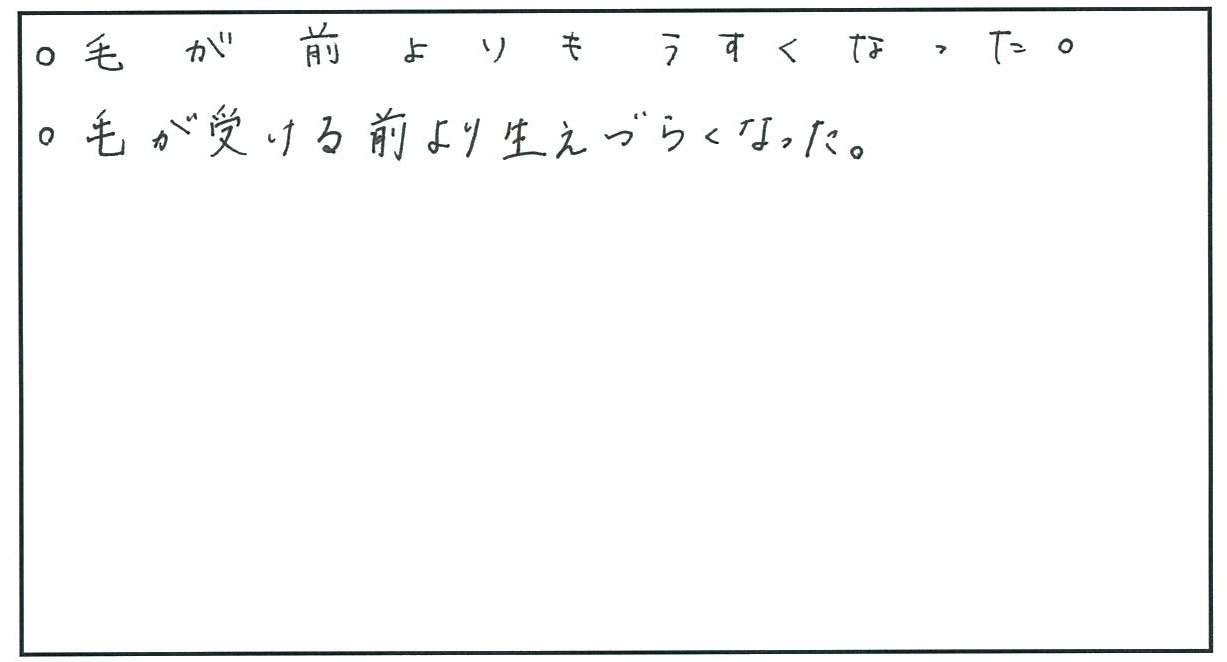 ○毛が前よりもうすくなった。
○毛が受ける前より生えづらくなった。